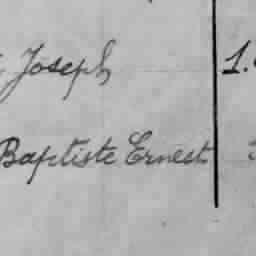 Joseph 1.
Baptiste Ernest